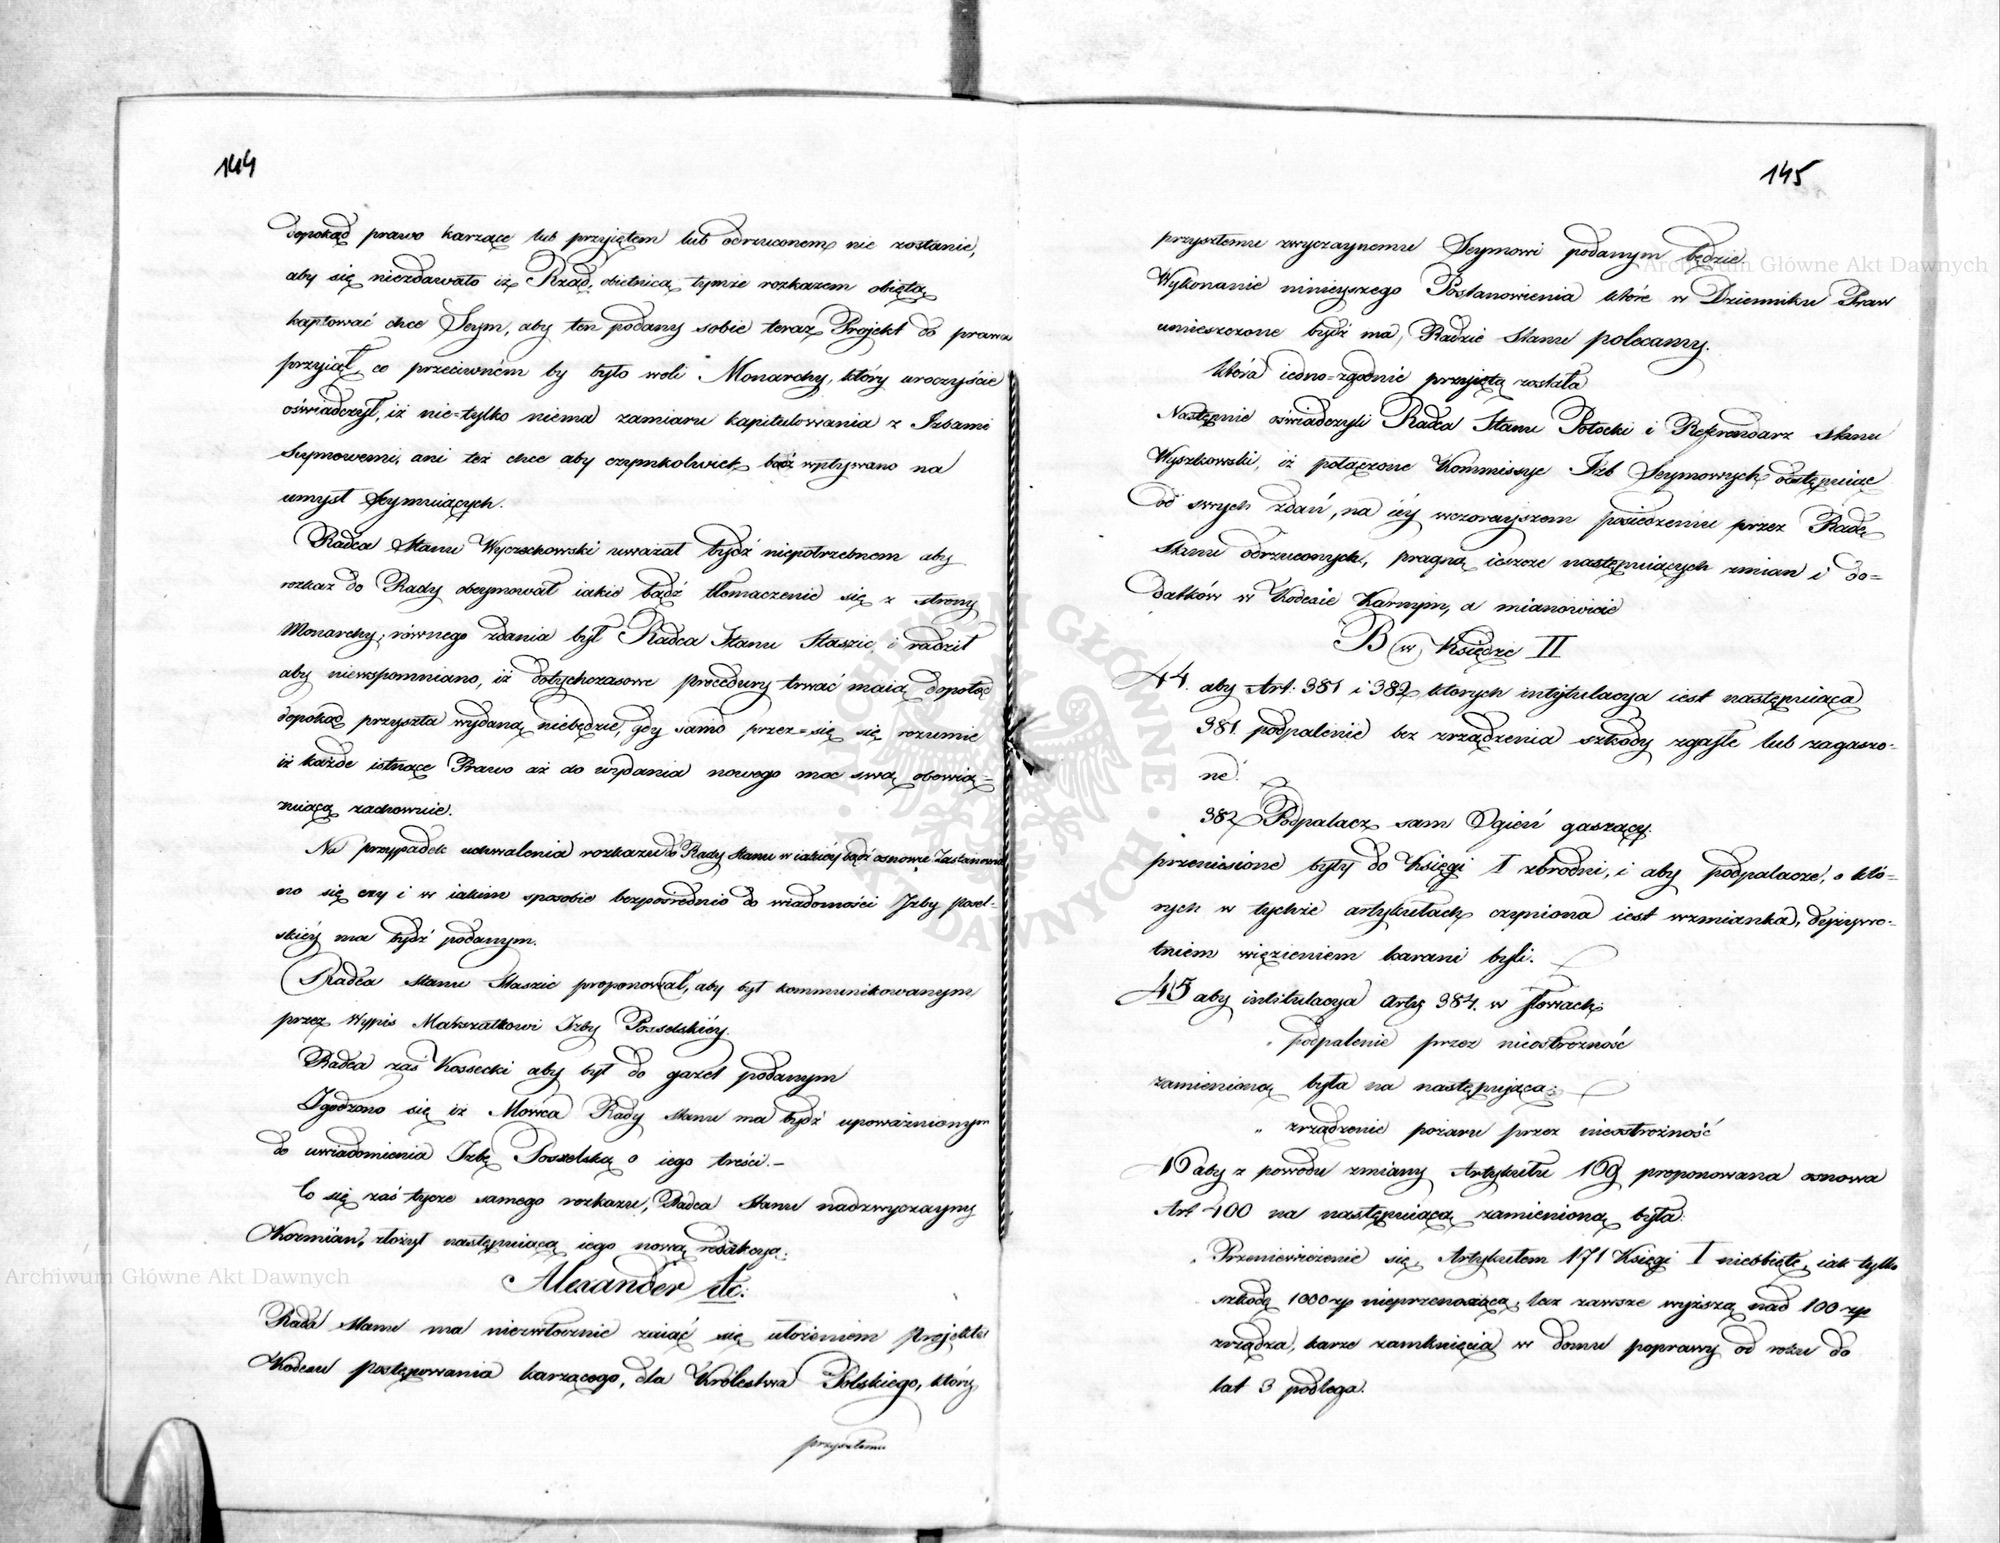 144
dopokąd prawo karzące lub przyiętem lub odrzuconem nie zostanie,
aby się niezdawało iż Rząd, obietnicą tymże rozkazem obiętą
kaptować chce Seym, aby ten podany sobie teraz Projekt do prawa
przyiął, co przeciwném by było woli Monarchy, który uroczyście
oświadczył, iż nie=tylko niema zamiaru kapitulowania z Izbami
Seymowemi, ani też chce aby czymkolwiek bądź wpływano na
umysł Seymuiących.
Radca Stanu Wyczechowski uważał bydź niepotrzebnem aby
rozkaz do Rady obeymował iakie bądź tłomaczenie się z strony
Monarchy; równego zdania był Radca Stanu Staszic, i radził
aby niewspomniano, iż dotychczasowe procedury trwać maią dopotąd
dopokąd przyszła wydaną niebędzie, gdy samo przez=się się rozumie
iż każde istnące Prawo aż do wydania nowego moc swą obowią=
zuiącą zachowuie.
Na przypadek uchwalenia rozkazu do Rady Stanu w iakiey bądź osnowie Zastanowio
no się czy i w iakim sposobie bezpośrednio do wiadomości Izby posel=
skiéy ma bydź podanym.
Radca Stanu Staszic proponował, aby był kommunikowanym
przez Wypis Marszałkowi Izby Poselskiéy.
Radca zaś Kossecki aby był do gazet podanym
Zgodzono się iż Mówca Rady Stanu ma bydź upoważnionym
do uwiadomienia Izbę Poselską o iego treści.–
Co się zaś tycze samego rozkazu, Radca Stanu nadzwyczayny
Koźmian, złożył następuiącą iego nową redakcyą:
Alexander etc:
Rada Stanu ma niezwłocznie zaiąć się ułożeniem projektu
Kodexu postępowania karzącego, dla Królestwa Polskiego, który
przyszłemu
145
przyszłemu zwyczaynemu Seymowi podanym będzie.
Wykonanie ninieyszego Postanowienia które w Dzienniku Praw
umieszczone bydź ma, Radzie Stanu polecamy.
która iedno=zgodnie przyiętą została
Następnie oświadczyli Radca Stanu Potocki i Referendarz Stanu
Wyszkowski, iż połączone Kommissye Izb Seymowych odstępuiąc
od swych zdań, na iéy wczorayszem posiedzeniu przez Radę
Stanu odrzuconych, pragną ieszcze następuiących zmian i do=
datków w Kodexie Karnym, a mianowicie
B w Księdze II
44. aby Art: 381 i 382 których intytulacya iest następuiąca
381 podpalenie bez zrządzenia szkody zgasłe lub zagaszo=
ne.
382 Podpalacz sam Ogień gaszący.
przeniesione były do Księgi I zbrodni, i aby podpalacze, o któ=
rych w tychże artykułach czyniona iest wzmianka, dożywo=
tniem więzieniem karani byli.
45 aby intitulacya Artu 384. w słowach
„ podpalenie przez nieostrożność
zamienioną była na następującą:
„ zrządzenie pożaru przez nieostrożność
46 aby z powodu zmiany Artykułu 169 proponowana osnowa
Art 400 na następuiącą zamienioną była:
„ Przeniewierzenie się, Artykułem 171 Księgi I nieobięte, iak tylko
szkodę 1000 zp nieprzenoszącą, lecz zawsze wyższą nad 100 zp
zrządza, karze zamknięcia w domu poprawy od roku do
lat 3 podlega.
Archiwum Główne Akt Dawnych
Archiwum Główne Akt Dawnych
ARCHIWUM GŁÓWNE AKT DAWNYCH